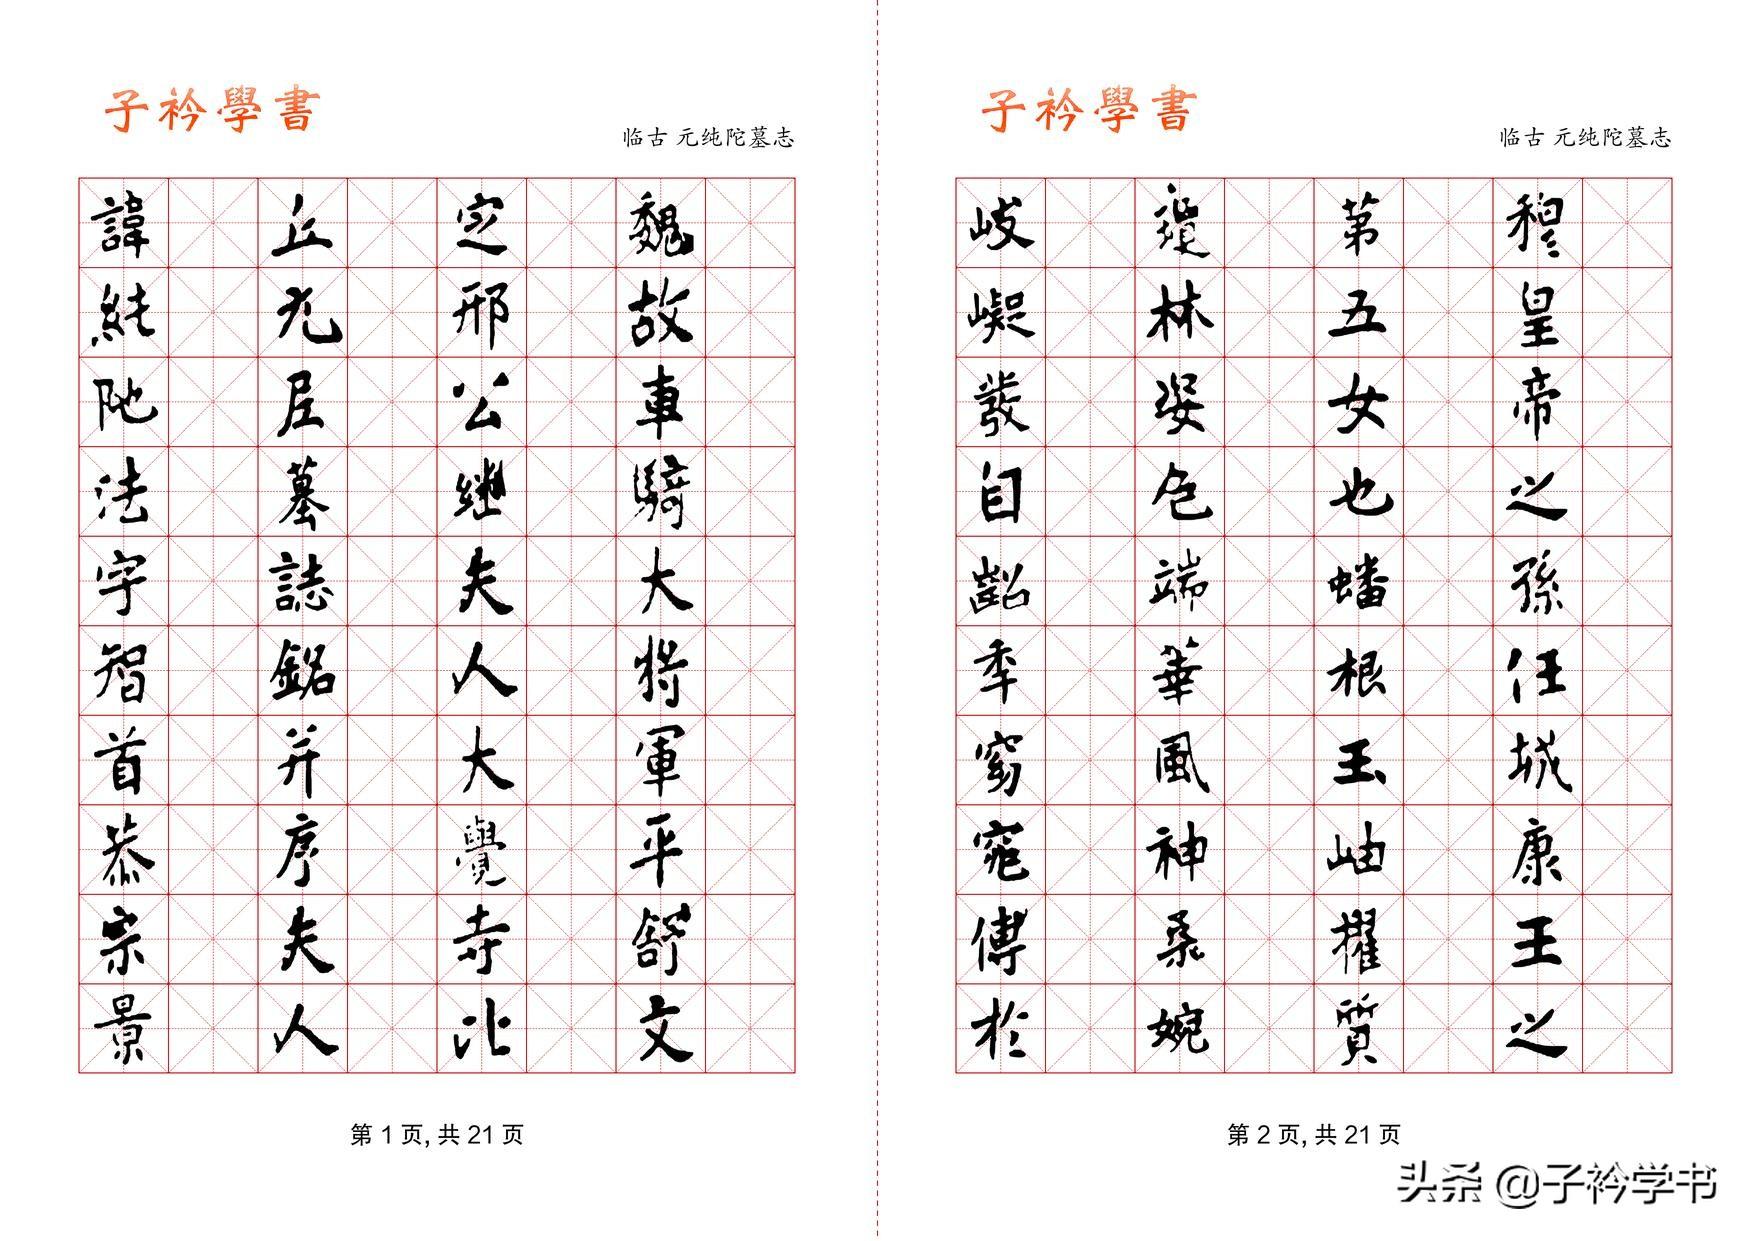 子衿學書
临古 元纯陀墓志
魏故車騎大將軍平舒文
定邢公繼夫人大覺寺比
丘元尼墓誌銘并序夫人
諱純陁法字智首恭宗景
第 1 页, 共 21 页
子衿學書
临古 元纯陀墓志
穆皇帝之孫任城康王之
第五女也蟠根玉岫擢質
瓊林姿色端華風神柔婉
岐嶷發自齠年窈窕傳於
第 2 页, 共 21 页
头条 @子衿学书